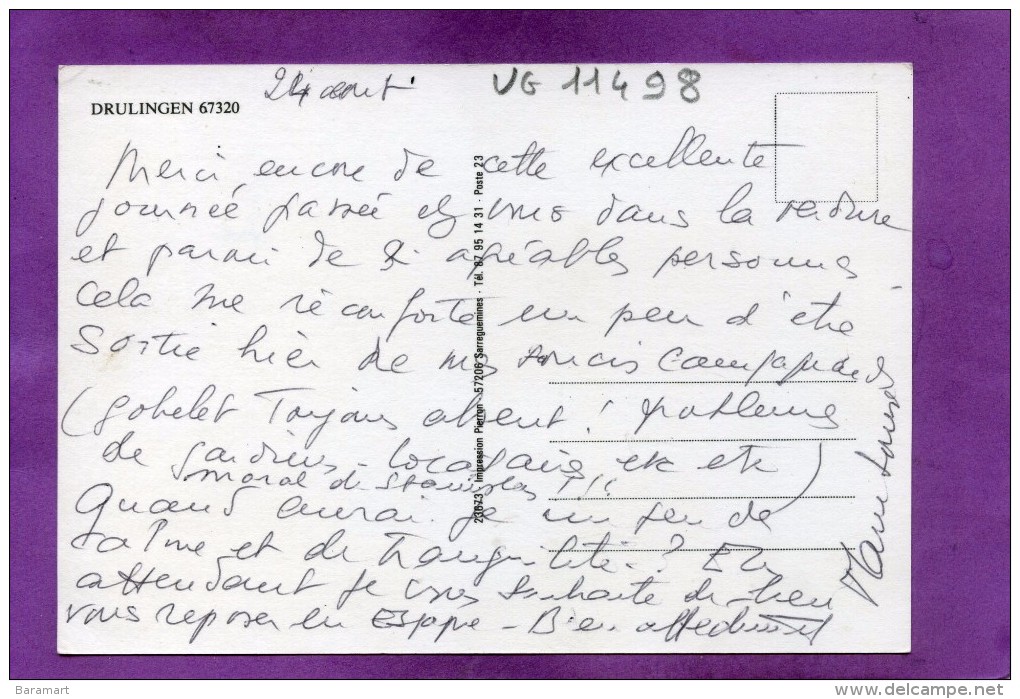 24 aout
VG 11498
DRULINGEN 67320
Merci encore de cette excellente
journée passée chez vous dans la verdure
et parmi de si agréables personnes
Cela me réconforte un peu d'être
Sortie hier de mes soucis campagnards
(gobelet Toujours absent ! problème
de gardiens - locataire etc etc)
moral de Stanislas !!!
Quand aurai je un peu de
calme et de tranquilité ? En
attendant je vous souhaite de bien
vous reposer en Espagne - Bien affectueusement
Marie Louise
23673 - Impression Pierron - 57206 Sarreguemines - Tél. 87 95 14 31 - Poste 23
Baramart
www.delcampe.net